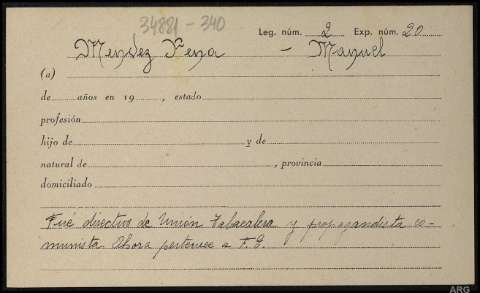 34881-340
Leg. núm. 2 Exp. núm. 20
Mendez Pena - Manuel
(a)
de años en 19 , estado
profesión
hijo de y de
natural de , provincia
domiciliado
Fué directivo de Unión Tabacalera y propagandista co-
munista. Ahora pertenece a F.E.
ARG